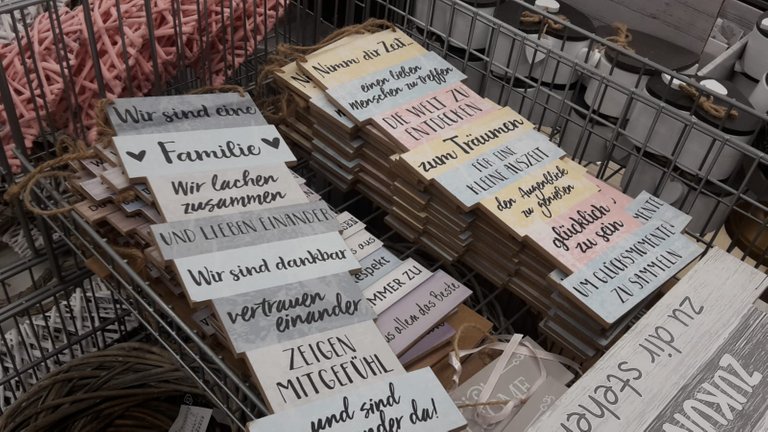 Wir sind eine
Familie
Wir lachen
zusammen
UND LIEBEN EINANDER
Wir sind dankbar
vertrauen
einander
ZEIGEN
MITGEFÜHL
und sind
der da!
Nimm dir Zeit...
einen lieben
Menschen zu treffen
DIE WELT ZU
ENTDECKEN
zum Träumen
FÜR EINE
KLEINE AUSZEIT
den Augenblick
zu genießen
glücklich
zu sein
MENTE
UM GLÜCKSMOMENTE
ZU SAMMELN
s aus
respekt
IMMER ZU
aus allem das Beste
zu dir stehen
ZUKUN